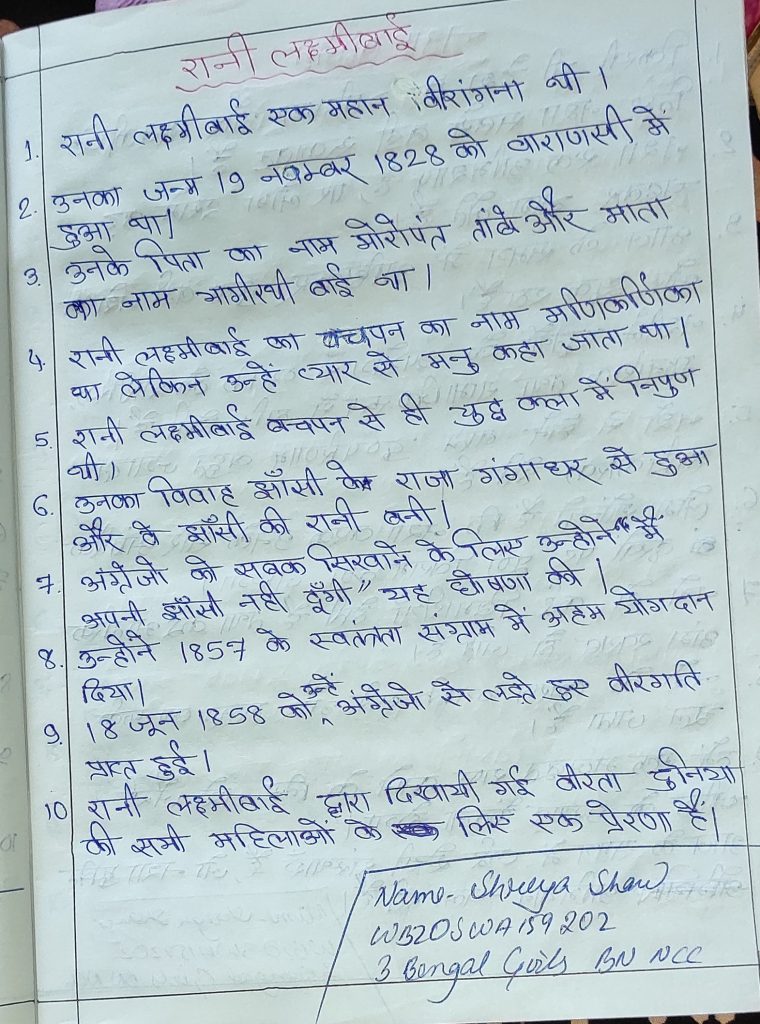 रानी लक्ष्मीबाई
1. रानी लक्ष्मीबाई एक महान वीरांगना थी ।
2. उनका जन्म 19 नवम्बर 1828 को वाराणसी में
हुआ था।
3. उनके पिता का नाम मोरोपंत तांबे और माता
का नाम भागीरथी बाई था ।
4. रानी लक्ष्मीबाई का बचपन का नाम मणिकर्णिका
था लेकिन उन्हें प्यार से मनु कहा जाता था।
5. रानी लक्ष्मीबाई बचपन से ही युद्ध कला में निपुण
थी।
6. उनका विवाह झाँसी के राजा गंगाधर से हुआ
और वे झाँसी की रानी बनी।
7. अंग्रेजो को सबक सिखाने के लिए उन्होंने "मैं
अपनी झाँसी नही दूँगी" यह घोषणा की ।
8. उन्होंने 1857 के स्वतंत्रता संग्राम में अहम योगदान
दिया।
9. 18 जून 1858 को उन्हें अंग्रेजो से लड़ते हुए वीरगति
प्राप्त हुई।
10 रानी लक्ष्मीबाई द्वारा दिखायी गई वीरता दुनिया
की सभी महिलाओं के लिए एक प्रेरणा है।
Name- Shreya Shaw
WB20SWA159202
3 Bengal Girls BN NCC